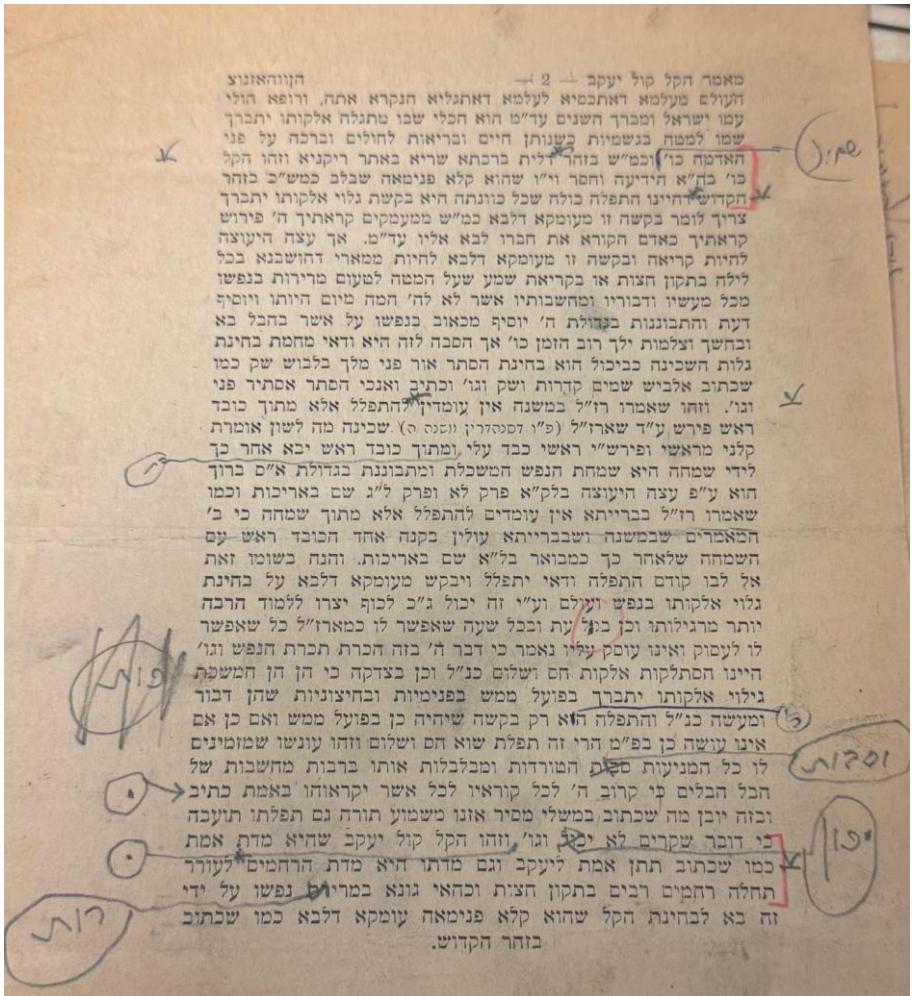 מאמר הקל קול יעקב — 2 —
העולם מעלמא דאתכסיא לעלמא דאתגליא הנקרא אתה, ורופא חולי
עמו ישראל ומברך השנים עד״מ הוא הכלי שבו מתגלה אלקותו יתברך
שמו למטה בגשמיות כשנותן חיים ובריאות לחולים וברכה על פני
האדמה כו׳ וכמ״ש בזהר דלית ברכתא שריא באתר ריקניא וזהו הקל
כו׳ בה״א הידיעה וחסר וי״ו שהוא קלא פנימאה שבלב כמש״כ בזהר
הקדוש דהיינו התפלה כולה שכל כוונתה היא בקשת גלוי אלקותו יתברך
צריך לומר בקשה זו מעומקא דלבא כמ״ש ממעמקים קראתיך ה׳ פירוש
קראתיך כאדם הקורא את חברו לבא אליו עד״מ. אך עצה היעוצה
להיות קריאה ובקשה זו מעומקא דלבא להיות ממארי דחושבנא בכל
לילה בתקון חצות או בקריאת שמע שעל המטה לטעום מרירות בנפשו
מכל מעשיו ודבוריו ומחשבותיו אשר לא לה׳ המה מיום היותו ויוסיף
דעת והתבוננות בגדולת ה׳ יוסיף מכאוב בנפשו על אשר בהבל בא
ובחשך וצלמות ילך רוב הזמן כו׳ אך הסבה לזה היא ודאי מחמת בחינת
גלות השכינה כביכול הוא בחינת הסתר אור פני מלך בלבוש שק כמו
שכתוב אלביש שמים קדרות ושק וגו׳ וכתיב ואנכי הסתר אסתיר פני
וגו׳. וזהו שאמרו רז״ל במשנה אין עומדין להתפלל אלא מתוך כובד
ראש פירש ע״ד שארז״ל (פ״ו דסנהדרין משנה ה) שכינה מה לשון אומרת
קלני מראשי ופירש״י ראשי כבד עלי ומתוך כובד ראש יבא אחר כך
לידי שמחה היא שמחת הנפש המשכלת ומתבוננת בגדולת א״ס ברוך
הוא ע״פ עצה היעוצה בלק״א פרק לא ופרק ל״ג שם באריכות וכמו
שאמרו רז״ל בברייתא אין עומדים להתפלל אלא מתוך שמחה כי ב׳
המאמרים שבמשנה ושבברייתא עולין בקנה אחד הכובד ראש עם
השמחה שלאחר כך כמבואר בל״א שם באריכות. והנה בשומו זאת
אל לבו קודם התפלה ודאי יתפלל ויבקש מעומקא דלבא על בחינת
גלוי אלקותו בנפש ועולם וע״י זה יכול ג״כ לכוף יצרו ללמוד הרבה
יותר מרגילותו וכן בכל עת ובכל שעה שאפשר לו כמארז״ל כל שאפשר
לו לעסוק ואינו עוסק עליו נאמר כי דבר ה׳ בזה הכרת תכרת הנפש וגו׳
היינו הסתלקות אלקות חס ושלום כנ״ל וכן בצדקה כי הן הן המשכת
גילוי אלקותו יתברך בפועל ממש בפנימיות ובחיצוניות שהן דבור
ומעשה כנ״ל והתפלה הוא רק בקשה שיהיה כן בפועל ממש ואם כן אם
אינו עושה כן בפ״מ הרי זה תפלת שוא חס ושלום וזהו עונשו שמזמינים
לו כל המניעות הטורדות ומבלבלות אותו ברבות מחשבות של
הבל הבלים כי קרוב ה׳ לכל קוראיו לכל אשר יקראוהו באמת כתיב
ובזה יובן מה שכתוב במשלי מסיר אזנו משמוע תורה גם תפלתו תועבה
כי דובר שקרים לא וגו׳ וזהו הקל קול יעקב שהיא מדת אמת
כמו שכתוב תתן אמת ליעקב וגם מדתו היא מדת הרחמים לעורר
תחלה רחמים רבים בתקון חצות וכהאי גונא נפשו על ידי
זה בא לבחינת הקל שהוא קלא פנימאה עומקא דלבא כמו שכתוב
בזהר הקדוש.
וסבות
יכון
רות